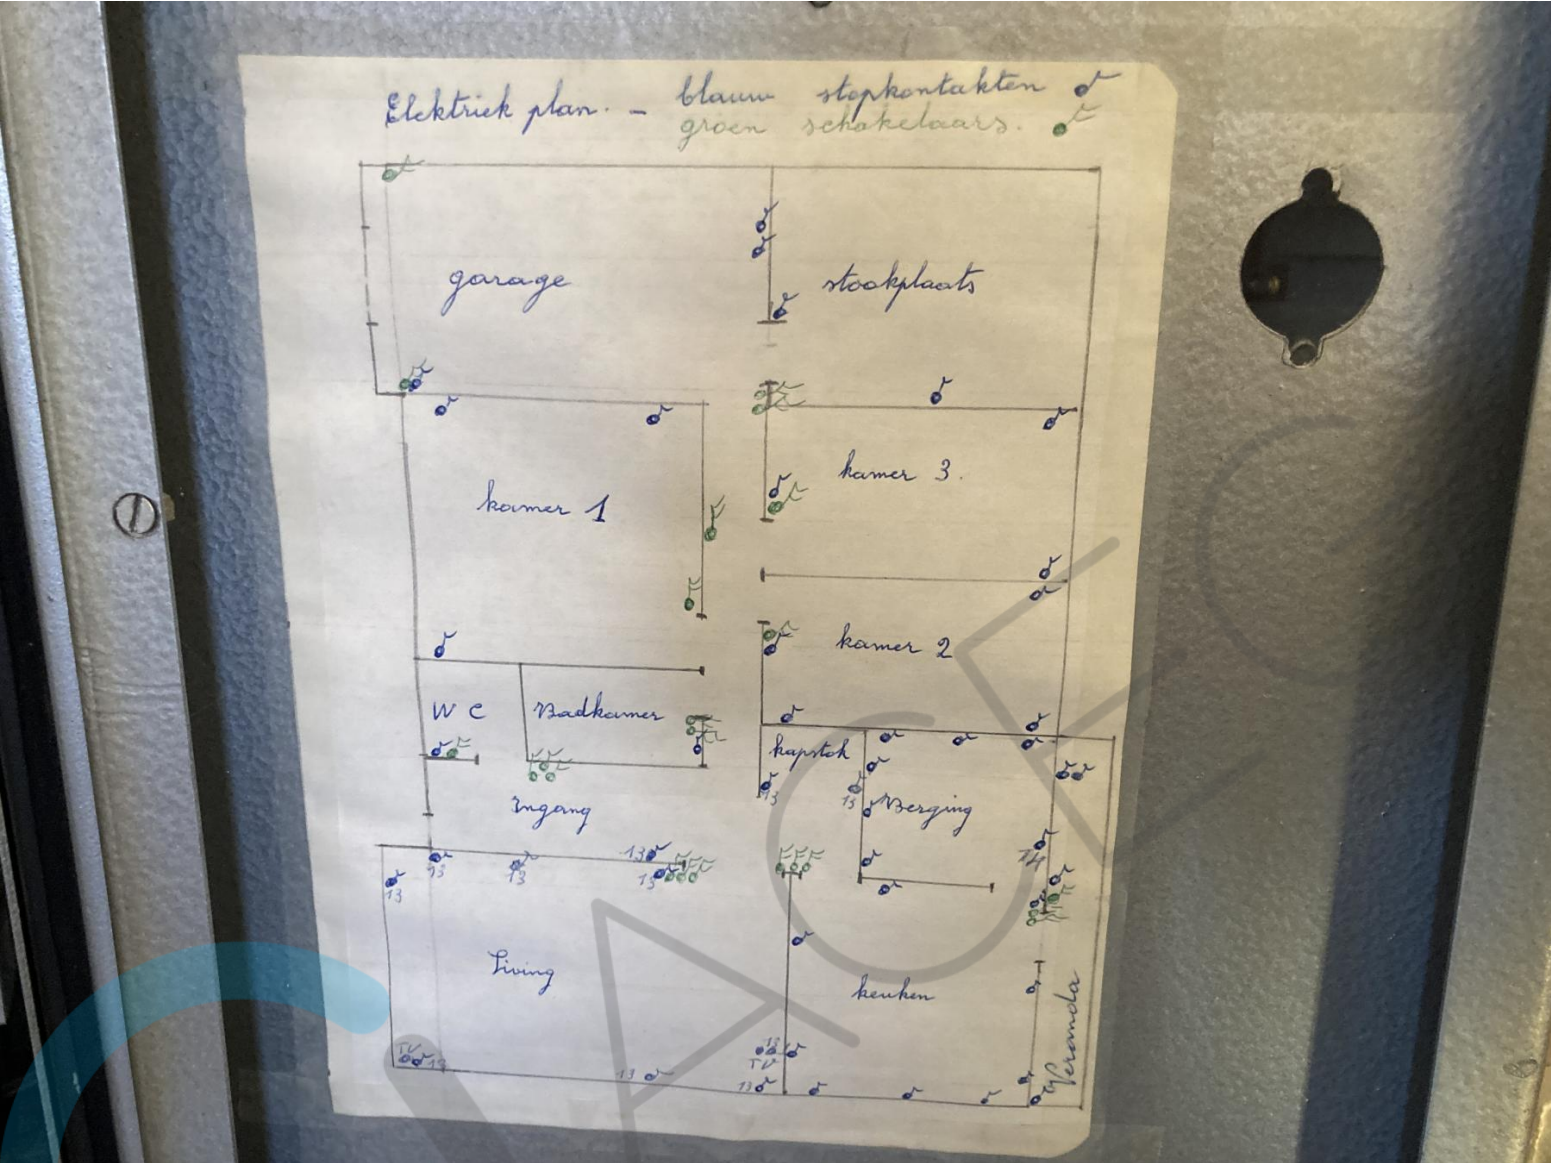 Elektriek plan. - blauw stopkontakten
groen schakelaars.
garage
stookplaats
kamer 1
kamer 3.
kamer 2
WC
Badkamer
kapstok
13
13
Ingang
Berging
13
13
13
13
13
14
Living
keuken
Veranda
TV
13
13
13
TV
13